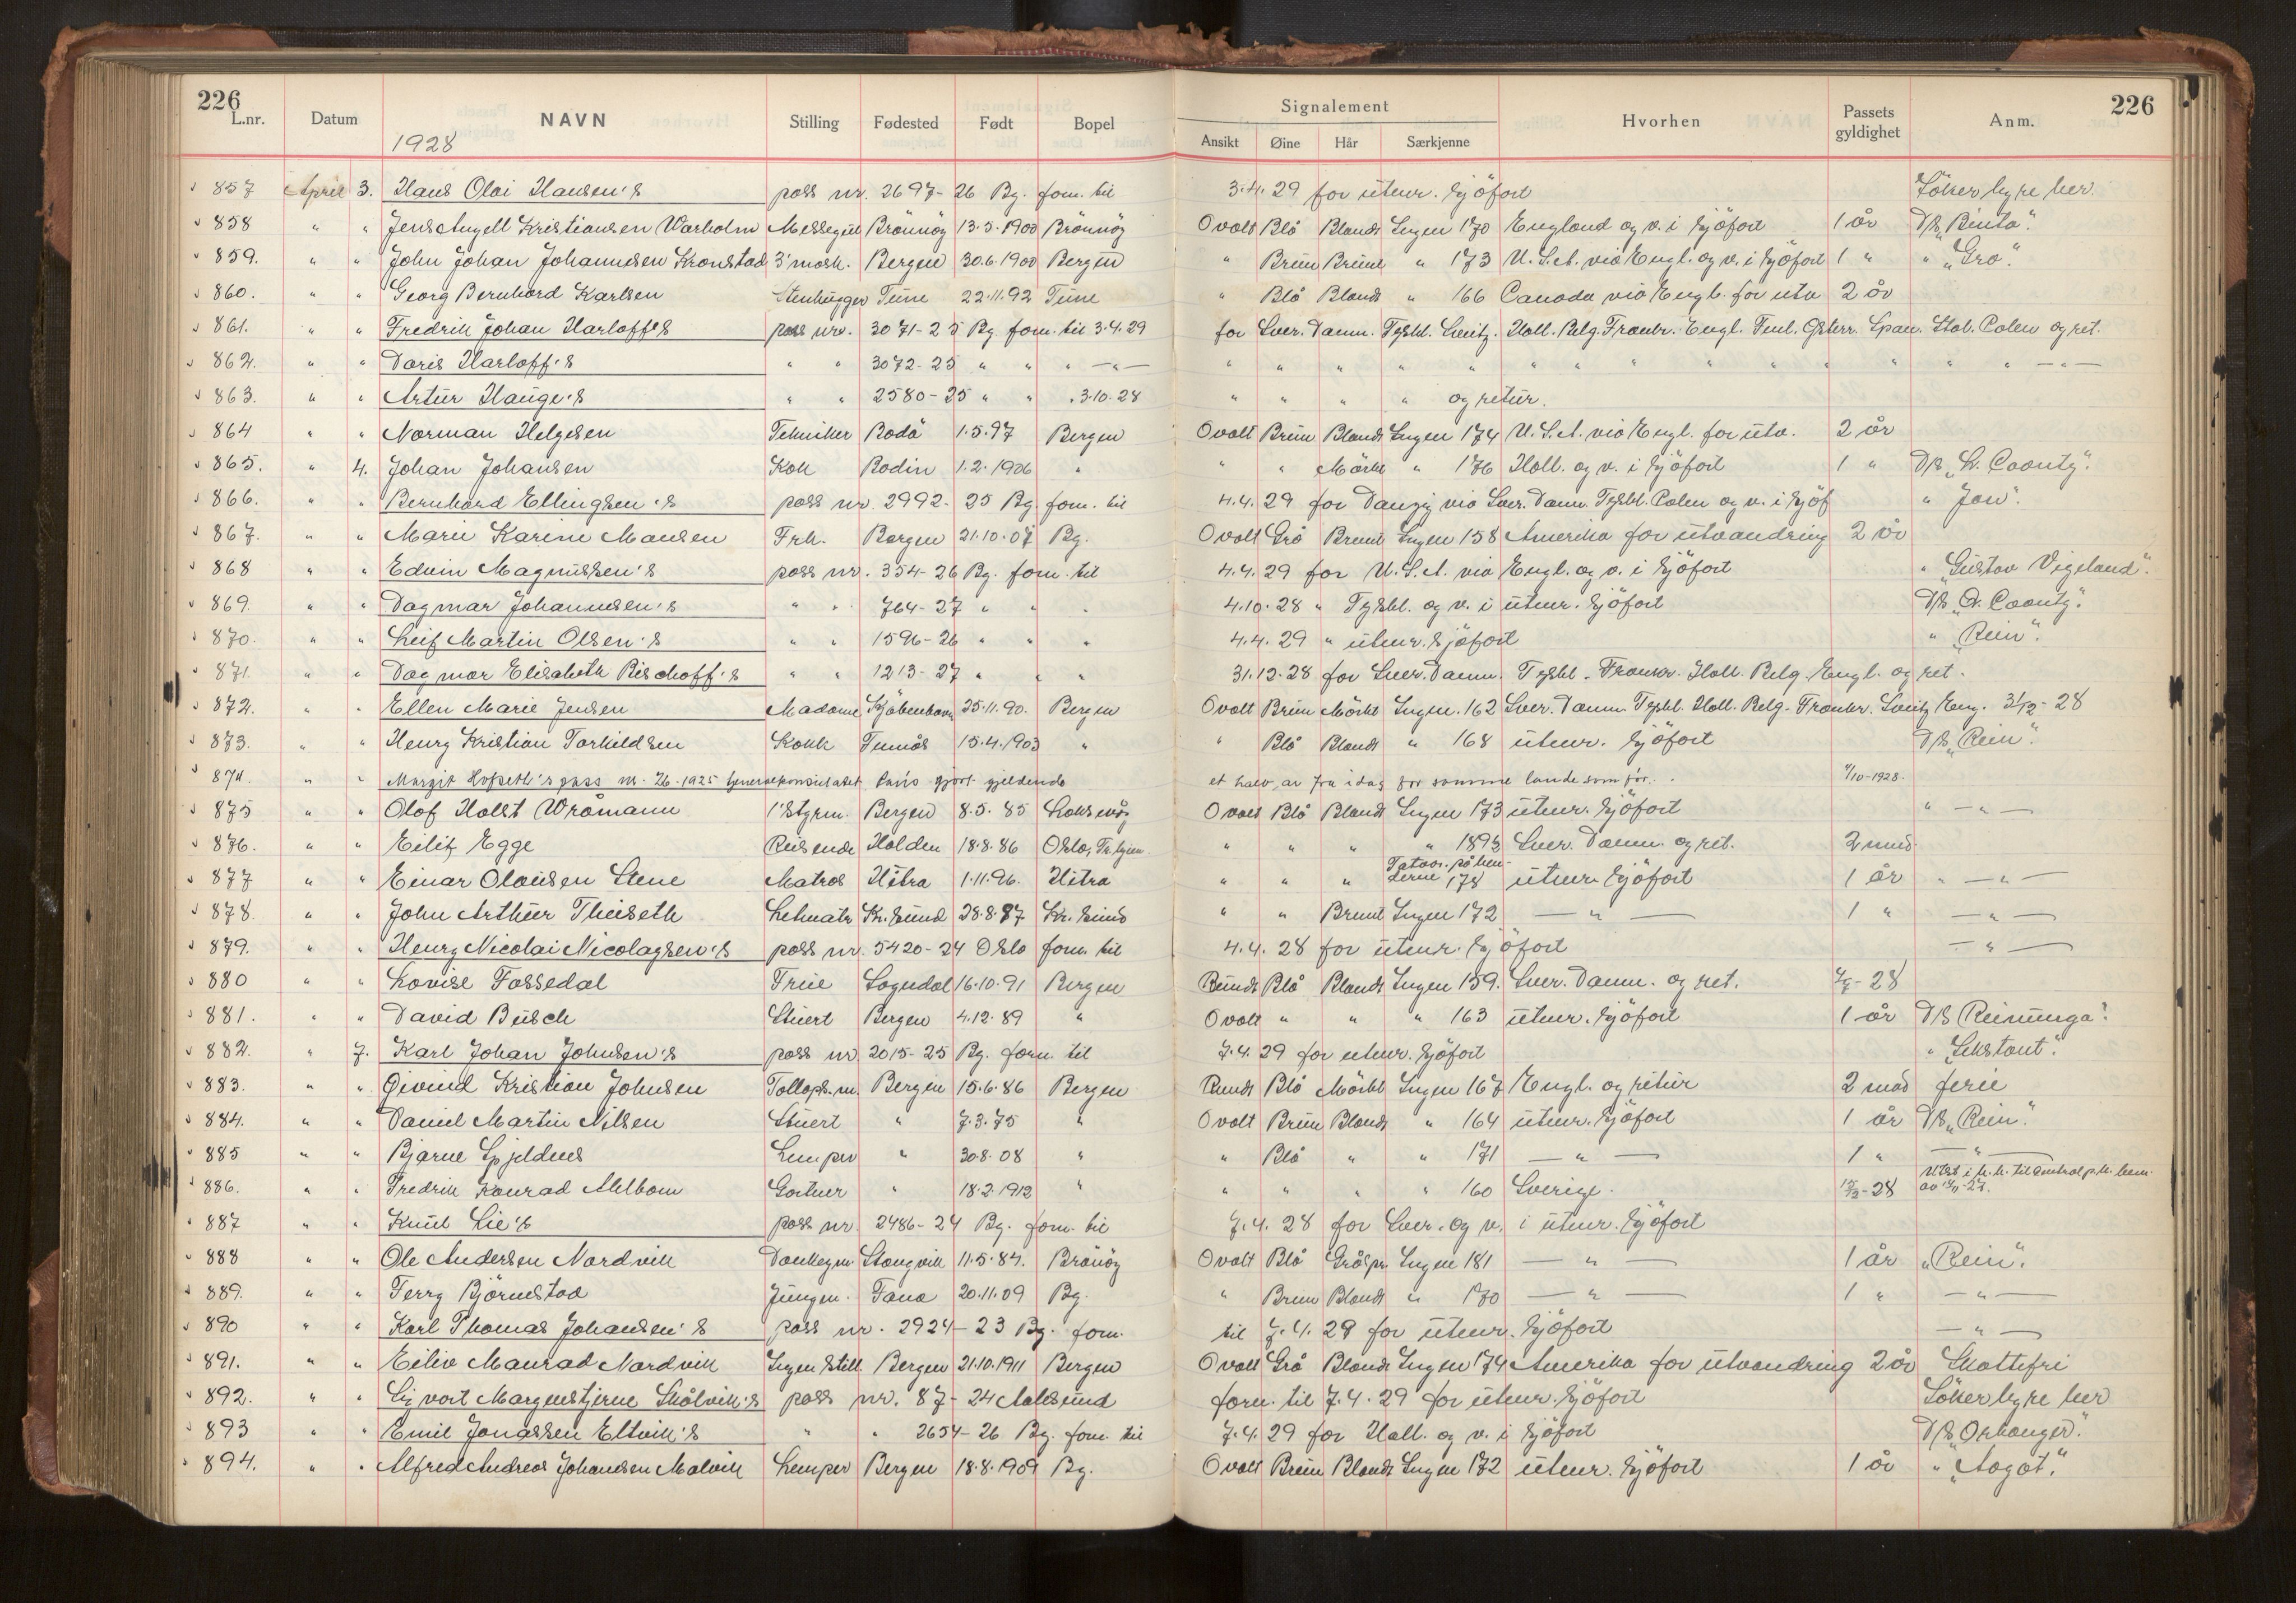 226 226
L.nr. Datum NAVN Stilling Fødested Født Bopel Signalement Hvorhen Passets gyldighet Anm.
Ansikt Øine Hår Særkjenne
1928
857 April 3. Hans Olai Hansen's pass nr. 2697-26 Bg. forn. til 3.4.29 for utenr. sjöfart Söker hyre her.
858 " " Jens Angell Kristiansen Warholm Messegut Brönnöy 13.5.1900 Brönnöy Ovalt Blå Blondt Ingen 170 England og v. i sjöfart 1 år D/S "Binta".
859. " " John Johan Johannesen Kronstad 3' mask. Bergen 30.6.1900 Bergen " Brun Brunt " 173 U.S.A. via Engl. og v. i sjöfart 1 " " "Gro".
860. " " Georg Bernhard Karlsen Stenhugger Tune 22.11.92 Tune " Blå Blondt " 166 Canada via Engl. for utv 2 år
861. " " Fredrik Johan Harloff's pass nr. 3071-25 Bg. forn. til 3.4.29 for Sver. Danm. Tyskl. Sveitz. Holl. Belg. Frankr. Engl. Finl. Österr. Span. Ital. Polen og ret.
862. " " Doris Harloff's " " 3072-25 " " " — " — " " " " " " " " " " " " " " — " —
863. " " Artur Hauge's " " 2580-25 " " " 3.10.28 " " " " og retur.
864 " " Norman Helgesen Tekniker Bodö 1.5.97 Bergen Ovalt Brun Blondt Ingen 174 U.S.A. via Engl. for utv. 2 år
865. " 4. Johan Johansen Kok Bodin 1.2.1906 " " " Mörkt " 176 Holl. og v. i sjöfart 1 " D/S "H. Coontz".
866. " " Bernhard Ellingsen's pass nr. 2992-25 Bg. forn. til 4.4.29 for Danzig via Sver. Danm. Tyskl. Polen og v. i sjöf " "Jan".
867. " " Marie Karine Monsen Frk. Bergen 21.10.07 Bg. Ovalt Grå Brunt Ingen 158 Amerika for utvandring 2 år
868 " " Edvin Magnussen's pass nr. 354-26 Bg. forn. til 4.4.29 for U.S.A. via Engl. og v. i sjöfart " "Gustav Vigeland".
869. " " Dagmar Johannesen's " " 764-27 " " " 4.10.28 " Tyskl. og v. i utenr. sjöfart D/S "A. Coontz".
870. " " Leif Martin Olsen's " " 1596-26 " " " 4.4.29 " utenr. sjöfart " "Rein".
871. " " Dagmar Elisabeth Bischoff's " " 1213-27 " " " 31.12.28 for Sver. Danm. Tyskl. Frankr. Holl. Belg. Engl. og ret.
872. " " Ellen Marie Jensen Madame Kjöbenhavn 25.11.90. Bergen Ovalt Brun Mörkt Ingen. 162 Sver. Danm. Tyskl. Holl. Belg. Frankr. Sveitz Eng. 31/12-28
873. " " Henry Kristian Torkildsen Kokk 15.4.1903 " " Blå Blondt " 168 utenr. sjöfart D/S "Rein".
874. " " Margit Hopseth's pass nr. 26-1925 Generalkonsulatet Paris gjort gjeldende et halv år fra idag for samme lande som för. 4/10-1928.
875 " " Olof Holst Wråmann 1' Styrm. Bergen 8.5.85 Laksevåg Ovalt Blå Blondt Ingen 173 utenr. sjöfart " — " —
876. " " Eilif Egge Reisende Halden 18.8.86 Oslo, Tr.hjem " " " " 189½ Sver. Danm. og ret. 2 mnd.
877 " " Einar Olausen Stene Matros Hitra 1.11.96. Hitra " " " Tatov. på hen- derne 178 utenr. sjöfart 1 år " — " —
878. " " John Arthur Theiseth Letmatr Kr.sund 28.8.87 Kr.sund " " Brunt Ingen 172 — " — 1 " — " —
879. " " Henry Nicolai Nicolaysen's pass nr. 5420-24 Oslo forn. til 4.4.28 for utenr. sjöfart — " —
880 " " Lovise Fossedal Frue Sogndal 16.10.91 Bergen Rundt Blå Blondt Ingen 159. Sver. Danm. og ret. 4/5-28
881. " " David Busch Stuert Bergen 4.12.89 " Ovalt " " " 163 utenr. sjöfart 1 år D/S Reinunga".
882. " 7. Karl Johan Johnsen's pass nr. 2015-25 Bg. forn. til 7.4.29 for utenr. sjöfart " "Sekstant".
883. " " Öivind Kristian Johnsen Tollops.m. Bergen 15.6.86 Bergen Rundt Blå Mörkt Ingen 167 Engl. og retur 2 mnd ferie
884. " " Daniel Martin Nilsen Stuert " 7.3.75 " Ovalt Brun Blondt " 164 utenr. sjöfart 1 år D/S "Rein".
885 " " Bjarne Spjeldnes Lemper " 30.8.08 " " Blå " " 171 — " — 1 " — " —
886. " " Fredrik Konrad Ahlbom Gartner " 18.2.1912 " " " " " 160 Sverige. -28 Utst. i h.h. til Sentralp.k. hem. av
887 " " Knut Lie's pass nr. 2486-24 Bg. forn. til 7.4.28 for Sver. og v. i utenr. sjöfart
888 " " Ole Andersen Nordvik Donkeym. Stangvik 11.5.84. Brönöy Ovalt Blå Gråspr. Ingen 181 — " — 1 år "Rein".
889. " " Terry Björnestad Jungm. Fana 20.11.09 Bg. " Brun Blondt " 170 — " — 1 " — " —
890 " " Karl Thomas Johansen's pass nr. 2924-23 Bg. forn. til 7.4.29 for utenr. sjöfart — " —
891. " " Eiliv Monrad Nordvik Ingen still. Bergen 21.10.1911 Bergen Ovalt Grå Blondt Ingen 174 Amerika for utvandring 2 år Skattefri
892. " " Sigvart Morgenstjerne Skålvik's pass nr. 87-24 Aalesund forn. til 7.4.29 for utenr. sjöfart Söker hyre her
893 " " Emil Jonassen Eltvik's " " 2654-26 Bg. forn. til 7.4.29 for Holl. og v. i sjöfart D/S Orkanger".
894. " " Alfred Andreas Johansen Malvik Lemper Bergen 18.8.1909 Bg. Ovalt Brun Blondt Ingen 172 utenr. sjöfart 1 år " "Aagot".